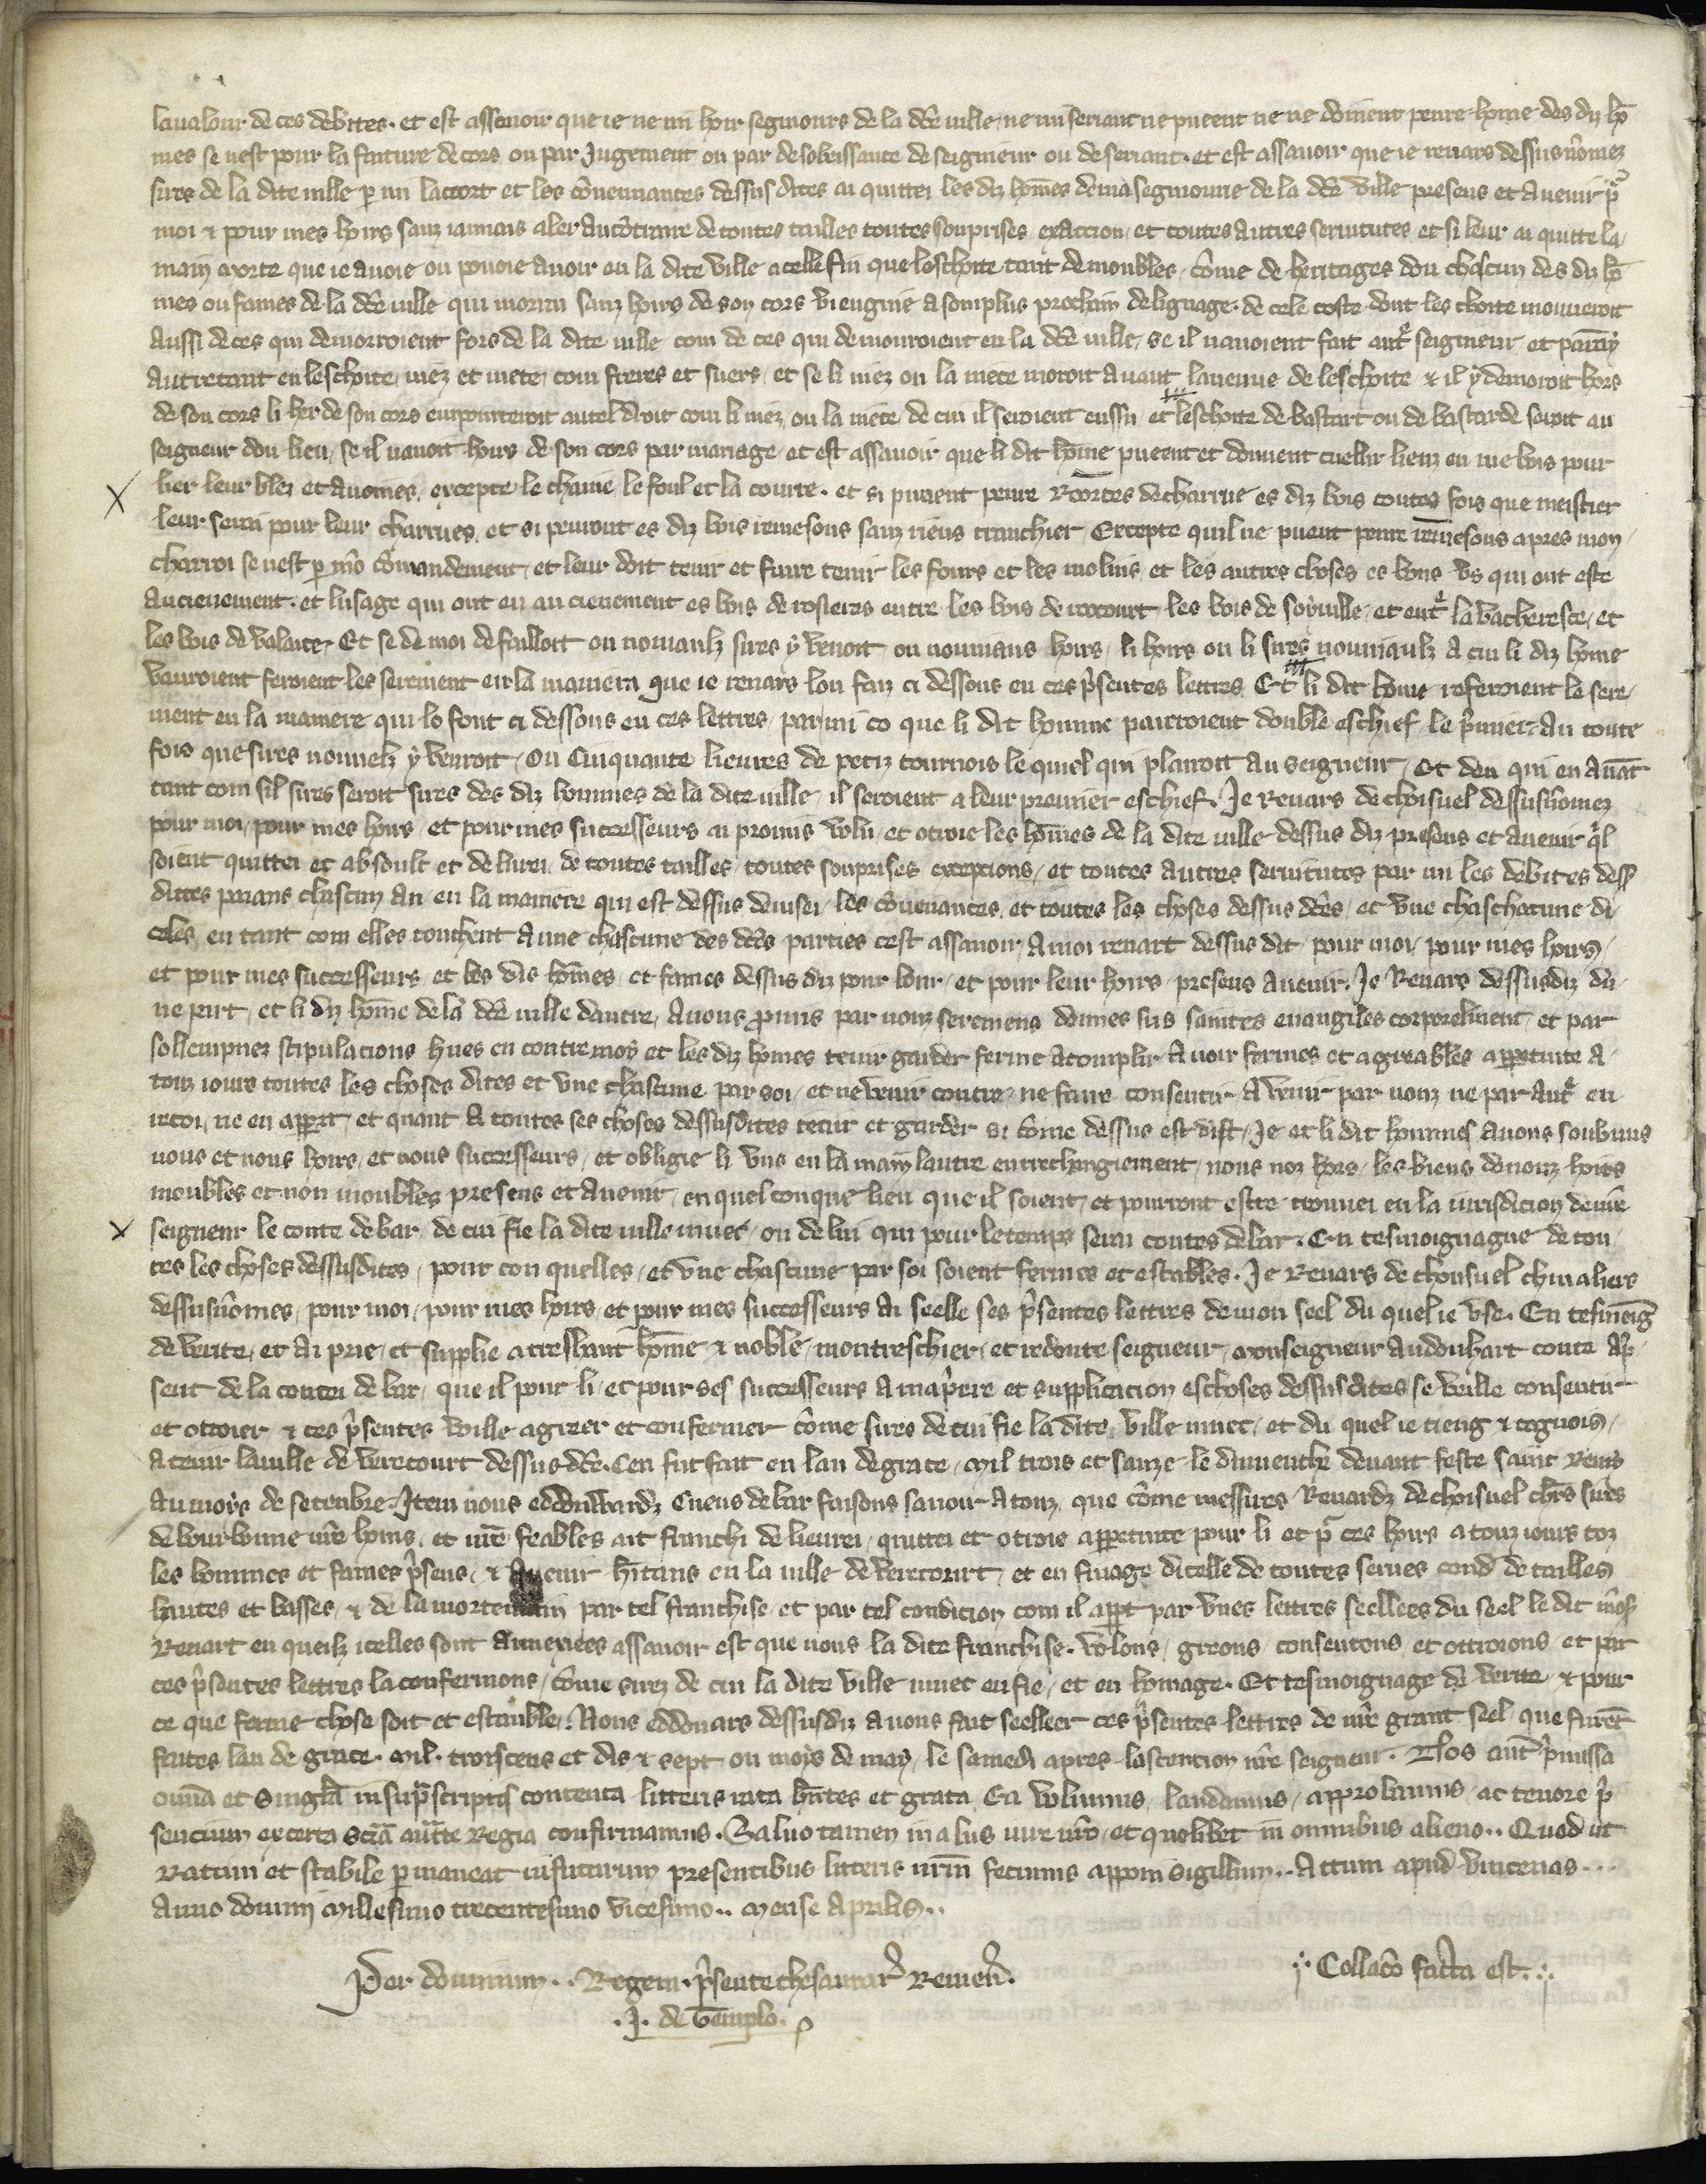 la valour de ces debites. et est assavoir que ie ne mi hoir segnours de la dce ville, ne mi seriant ne pueent ne ne doiuent penre home des diz ho
mes se nest pour la faiture de cors ou par Jugement ou par desobeissance de seigneur ou de seriant. et est assavoir que ie renars dessus nomez
sires de la dite ville p mi lacort et les conuenances dessus dites ai quittei les diz homes de ma segnourie de la dce ville presens et auenir pr
moi & pour mes hoirs sanz iamais aler au contraire de toutes tailles toutes souprises exaccion, et toutes autres seruitutes et si leur ai quitte la
main morte que ie auoie ou pouoie auoir en la dite ville a celle fin que leschoite tant de moubles, come de heritages dou chascun des diz ho
mes ou fames de la dce ville qui morra sanz hoirs de son cors viengne a son plus prochain de lignage. de cele coste dont les choite mouueroit
aussi de ces qui demorroient fors de la dite ville com de ces qui demourroient en la dce ville, se il nauoient fait autre seigneur et
autretant en leschoite, niez et niece, com freres et suers, et se li niez ou la niece moroit auant lauenue de leschoite, & il y demoroit hoirs
de son cors li her de son cors emporteroit autel droit com li niez, ou la niece, de cui il seroient eussu et leschoite de bastart ou de bastarde seroit au
seigneur dou lieu, se il nauoit hoirs de son cors par mariage, et est assavoir que li dit home pueent et doiuent cuellir lienz en me bois pour
lier leur blez et auoines, excepte le chaine le foul et la courre. et si pueent penre Roortes de charrue es diz bois toutes fois que mestier
leur serai pour leur charrues, et si penront es diz bois remesons sanz riens tranchier, Excepte quil ne puent penre remesons apres mon
charroi se nest p mon comandement, et leur doit tenir et faire tenir les fours et les molins, et les autres choses es bons vs qui ont este
ancienement. et lusage qui ont eu an cienement es bois de rosieres entre les bois de rocourt les bois de soiuille, et entre la vacheresce, et
les bois de valaite. Et se de moi defailloit ou nouiaulz sires y venoit, ou nouuiaus hoirs, li hoirs ou li sires nouuiaulz a cui li diz home
vauroient feroient les serement en la maniera que ie renars lou faiz ci dessous en ces presentes lettres. Et li dit home referoient le sere
ment en la maniere qui lo font ci dessous en ces lettres, parmi co que li dit homme paieroient double eschief le premier an toute
fois que sires nouuelz y venroit, ou Cinquante lieures de petiz tournois le quiel qui plairoit au seigneur, Et den qui en auat
tant com sil sires seroit sires des diz hommes de la dite ville, il seroient a leur premier eschief. Je Renars de choisuel dessus nomez
pour moi, pour mes hoirs, et pour mes successeurs ai promis volu, et otroie les homes de la dite ville dessus diz presens et auenir quil
soient quittei et absoult et deliurei, de toutes tailles, toutes souprises exceptions, et toutes autres seruitutes par mi les debites dess
dittes paians chascun an, en la maniere qui est dessus deuisei, les conuenances, et toutes les choses dessus dces, et vne chaschacune di
celes, en tant com elles touchent a une chascune des dces parties cest assauoir, a moi renart dessus dit, pour moi, pour mes hoirs,
et pour mes successeurs, et les diz homes, et fames dessus diz pour lour, et pour leur hoirs, presens auenir. Je Renars dessusdiz du
ne part, et li diz home de la dce ville dautre, Auons promis par nouz seremens donnes sus saintes euangiles corporelment, et par
sollempnez stipulacions hues en contre moy et les diz homes tenir garder ferme acomplir auoir fermes et agreables appetuite a
touz iours toutes les choses dites et vne chascune par soi, et ne venir contre, ne faire consentir a venir par nouz ne par autre en
recoi, ne en appert, et quant a toutes ses choses dessusdites tenir et garder si come dessus est dist, Je et li dit hommes auons soubmis
nous et nous hoirs, et nous successeurs, et obligie li vns en la main lautre entrechangiement, nous noz hoirs, les biens de nouz hoirs
moubles et non moubles presens et auenir, en quelconque lieu que il soient, et pourront estre trouuei en la iurisdicion de nre
seigneur le conte de bar, de cui fie la dite ville muet, ou de lui qui pour le temps serai contes de bar. En tesmoignague de tou
tes les choses dessusdites, pour cou quelles, et vne chascune par soi soient fermes et estables. Je Renars de choisuel chiualiers
dessus nomes, pour moi, pour mes hoirs et pour mes successeurs ai seelle ses presentes lettres de mon seel du quel ie vse. En tesmoig
de verite, et ai prie, et supplie a treshaut home & noble, mon treschier, et redoute seigneur, monseigneur audouhart conte ap
sent de la contei de bar, que il pour li, et pour ses successeurs a ma priere et supplicacion es choses dessus dites se veille consentir
et ottroier, & ces presentes voille agreer et confermer come sires de cui fie la dite ville muet, et du quel ie tieng & cognois,
a tenir la ville de verecourt dessus dce. Cen fut fait en lan de grace, mil trois et sauze le dimenche deuant feste saint Remi
au moys de setenbre. Item nous eddouwardz Cuens de bar faisons sauoir a touz, que come messires Renardz de choisuel chrs sires
de bourbonne nre homs, et nre feables ait franchi deliurei, quittei et otroie appetuite pour li et pr ces hoirs a touz iours toz
les hommes et fames psens, & auenir hitans en la ville de verecourt, et en finage dicelle de toutes serues cond de tailles
hautes et basses, & de la mortemain par tel franchise, et par tel condicion com il appt par vnes lettres seellees du seel le dit mons
Renart en queilz icelles sont annexees assauoir est que nous la dite franchise. volons, greons, consentons, et ottroions, et par
ces presentes lettres la confermons, come sirez de cui la dite ville muet en fie, et en homage. Et tesmoignage de verite, & pour
ce que ferme chose soit et estauble. Nous eddouars dessusdiz auons fait seelleer ces presentes lettres de nre grant seel, que furent
faites lan de grace. mil. troiscens et dis & sept ou moys de may, le samedi apres lascencion nre seigneur. Nos aut pmissa
omia et singla in suprascriptis contenta litteris rata hntes et grata, Ea volumus, laudamus, approbamus, ac tenore pre
sencium ex certa scia aucte Regia confirmamus. Saluo tamen in aliis iure nro, et quolibet in omnibus alieno.. Quod ut
Ratum et stabile permaneat in futurum presentibus litteris nrm fecimus apponi sigillum.. Actum apud vincenas...
Anno domini millesimo trecentesimo vicesimo.. mense Aprilis..
Per dominum.. Regem. presente thesaurar Remen.
.J. de Templo.
Collaco facta est.